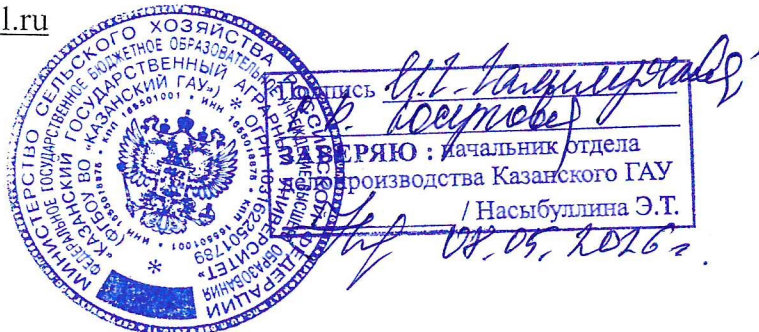 l.ru
МИНИСТЕРСТВО СЕЛЬСКОГО ХОЗЯЙСТВА РОССИЙСКОЙ ФЕДЕРАЦИИ
ФЕДЕРАЛЬНОЕ ГОСУДАРСТВЕННОЕ БЮДЖЕТНОЕ ОБРАЗОВАТЕЛЬНОЕ УЧРЕЖДЕНИЕ ВЫСШЕГО ОБРАЗОВАНИЯ
«КАЗАНСКИЙ ГОСУДАРСТВЕННЫЙ АГРАРНЫЙ УНИВЕРСИТЕТ»
(ФГБОУ ВО «КАЗАНСКИЙ ГАУ») * ОГРН 1031622501789
Подпись
ЗАВЕРЯЮ : начальник отдела
делопроизводства Казанского ГАУ
/ Насыбуллина Э.Т.
08.05.2026 г.